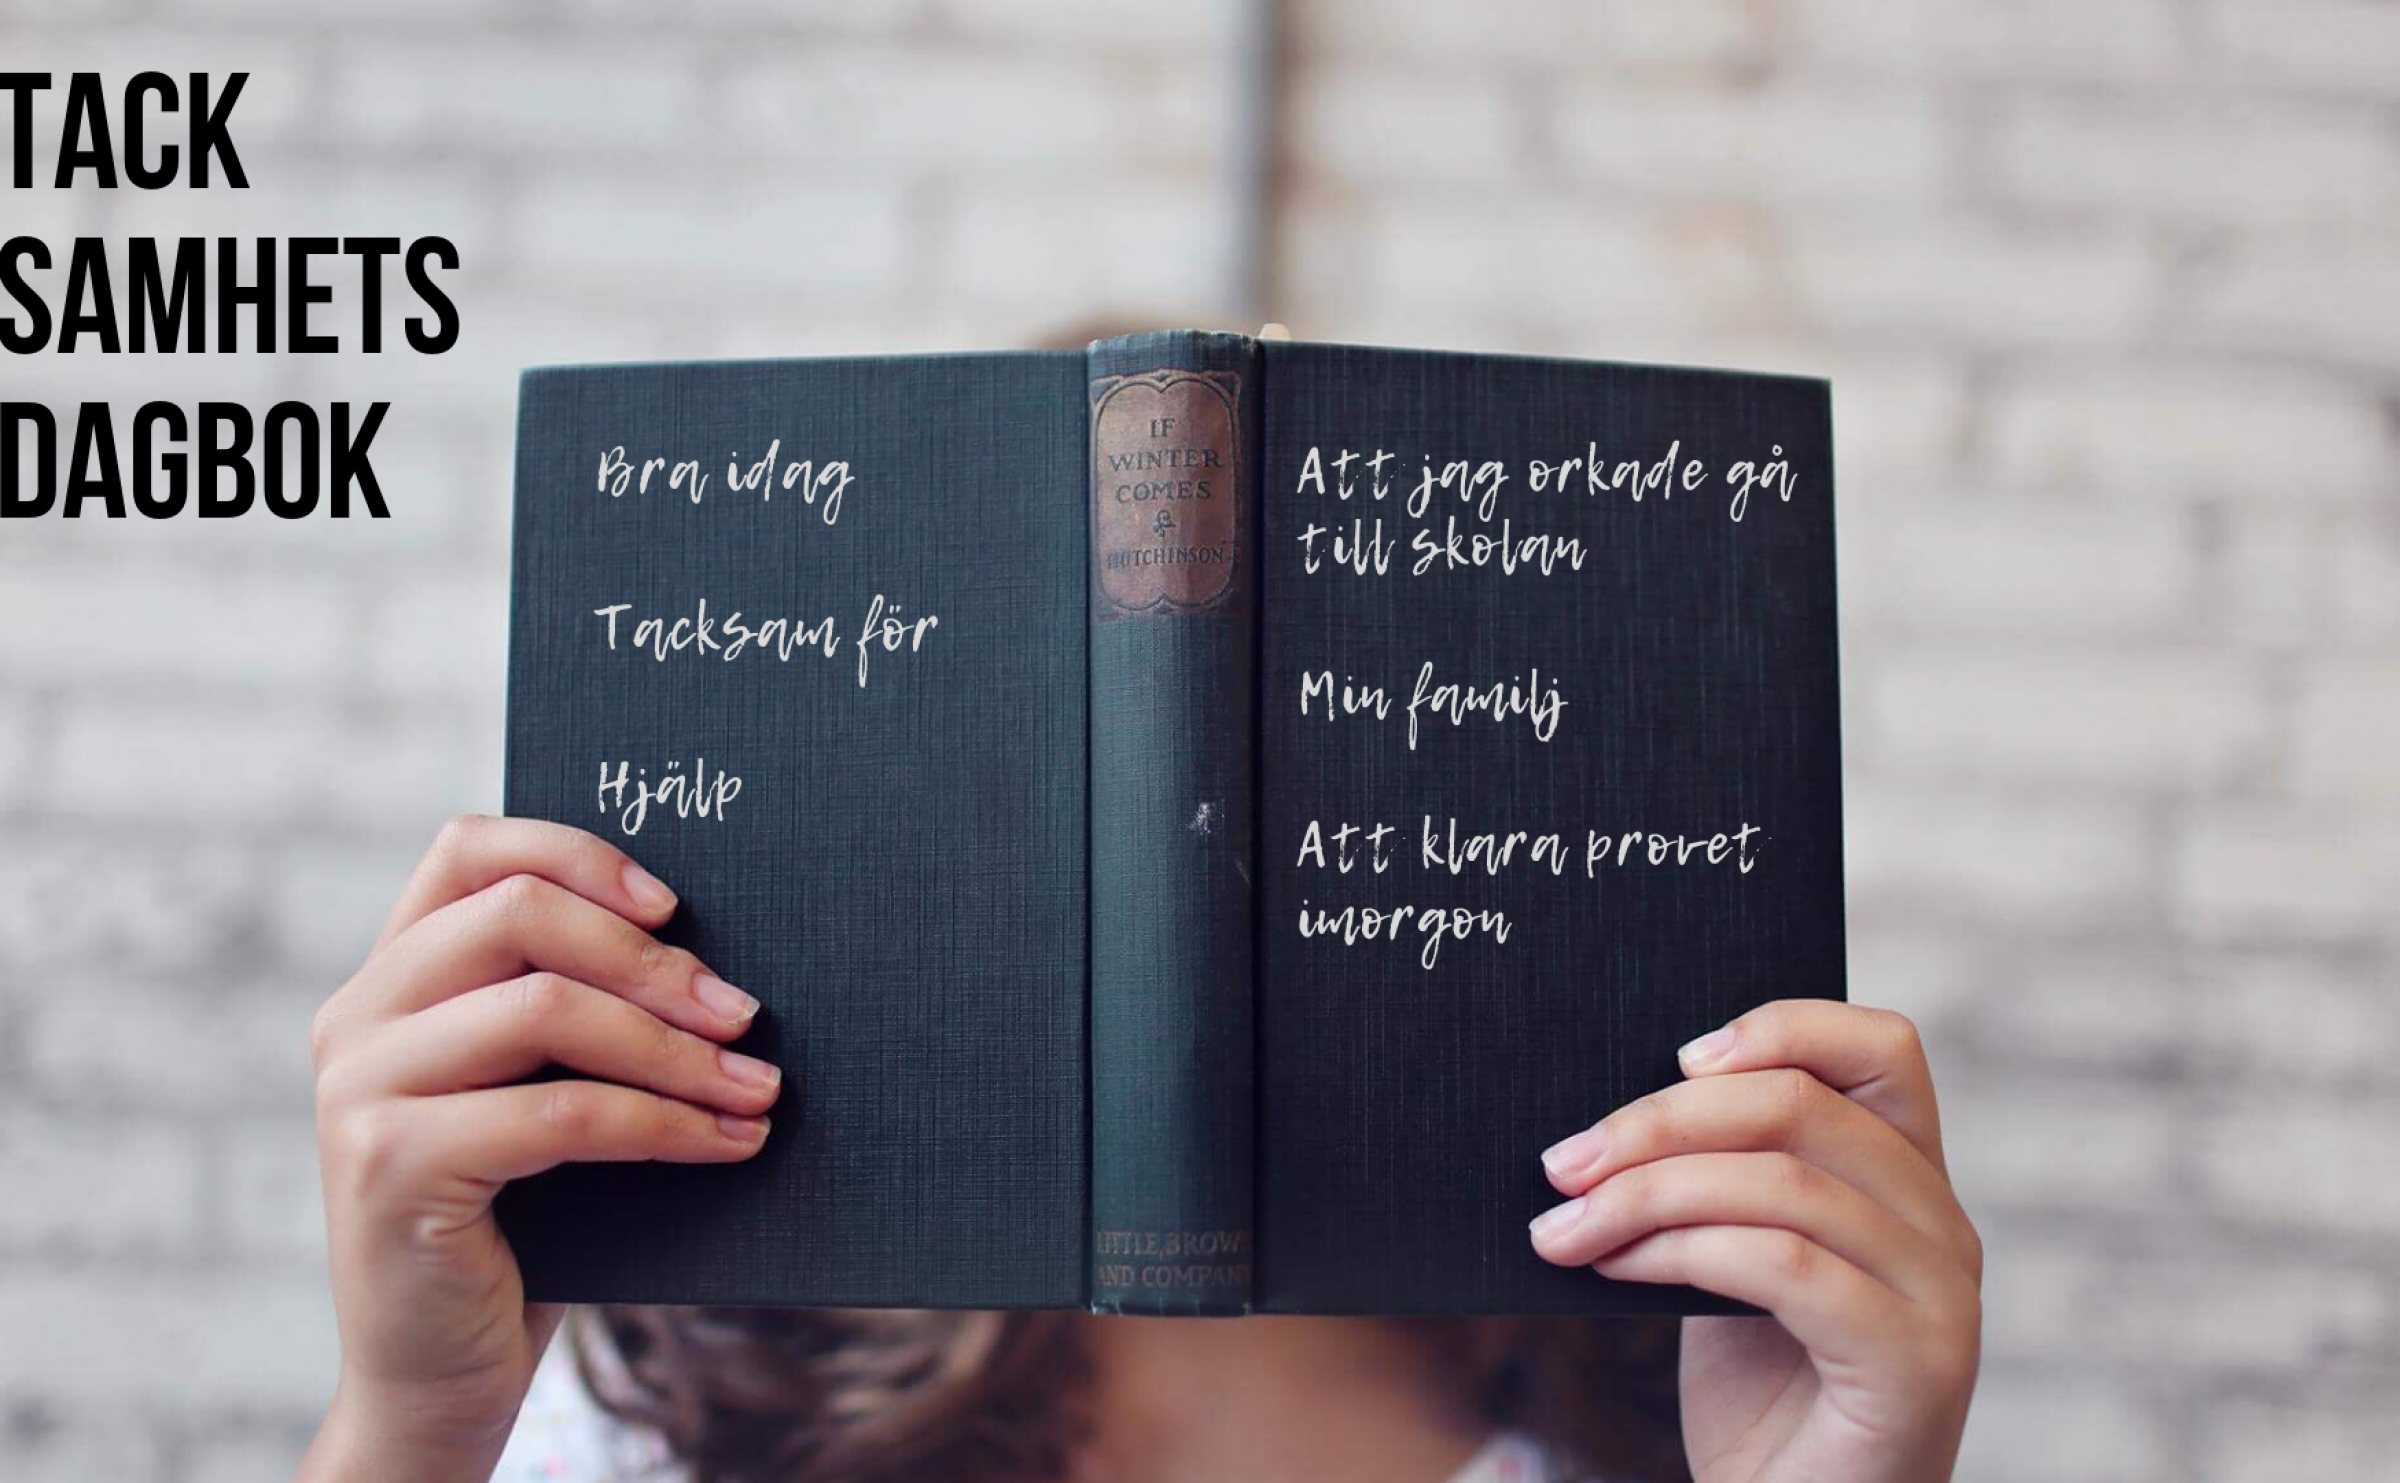 TACK
SAMHETS
DAGBOK
Bra idag
Tacksam för
Hjälp
IF
WINTER
COMES
&
HUTCHINSON
LITTLE, BROWN
AND COMPANY
Att jag orkade gå
till skolan
Min familj
Att klara provet
imorgon